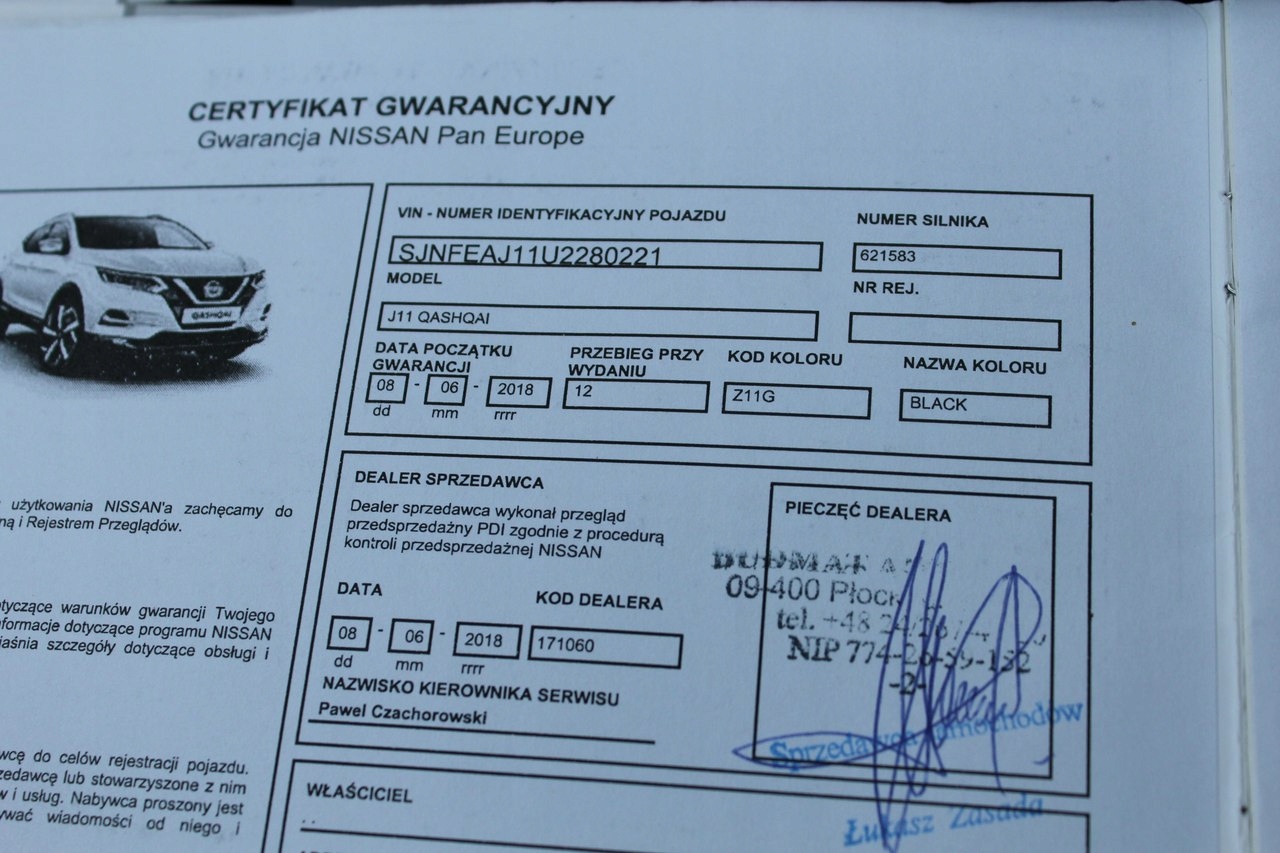 CERTYFIKAT GWARANCYJNY
Gwarancja NISSAN Pan Europe
QASHQAI
użytkowania NISSAN'a zachęcamy do
i Rejestrem Przeglądów.
warunków gwarancji Twojego
dotyczące programu NISSAN
szczegóły dotyczące obsługi i
do celów rejestracji pojazdu.
lub stowarzyszone z nim
i usług. Nabywca proszony jest
wiadomości od niego i
VIN - NUMER IDENTYFIKACYJNY POJAZDU
SJNFEAJ11U2280221
NUMER SILNIKA
621583
MODEL
J11 QASHQAI
NR REJ.
DATA POCZĄTKU
GWARANCJI
08 - 06 - 2018
dd mm rrrr
PRZEBIEG PRZY
WYDANIU
12
KOD KOLORU
Z11G
NAZWA KOLORU
BLACK
DEALER SPRZEDAWCA
Dealer sprzedawca wykonał przegląd
przedsprzedażny PDI zgodnie z procedurą
kontroli przedsprzedażnej NISSAN
DATA
08 - 06 - 2018
dd mm rrrr
KOD DEALERA
171060
NAZWISKO KIEROWNIKA SERWISU
Pawel Czachorowski
PIECZĘĆ DEALERA
09-400 Płock
tel. +48
NIP
-2-
Sprzedawca samochodów
Łukasz Zasada
WŁAŚCICIEL
. .